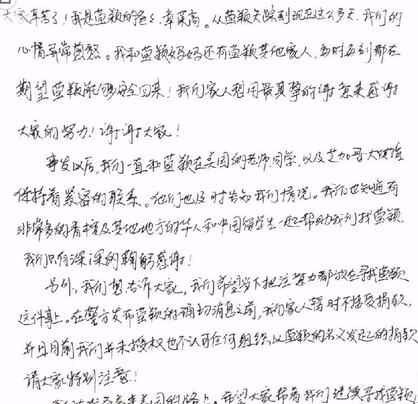 大家辛苦了！我是蓝颖的爸爸，章荣高。从蓝颖失踪到现在这么多天，我们的
心情异常悲愁。我和蓝颖妈妈还有蓝颖其他家人，每时每刻都在
期望蓝颖能够安全回来！我们家人想用最真挚的谢意来感谢
大家的努力！谢谢大家！
事发以后，我们一直和蓝颖在美国的老师同学，以及芝加哥大使馆
保持着紧密的联系。他们也及时告知我们情况。我们也知道有
非常多的香槟及其他地方的华人和中国留学生一起帮助我们找蓝颖，
我们只有深深的鞠躬感谢！
另外，我们想告诉大家，我们希望当下把注意力都放在寻找蓝颖
这件事上。在警方发布蓝颖的确切消息之前，我们家人暂时不接受捐款，
并且目前我们并未授权也不认可任何组织以蓝颖的名义发起的捐款
请大家特别注意！
来美国的路上，希望大家帮着我们继续寻找蓝颖